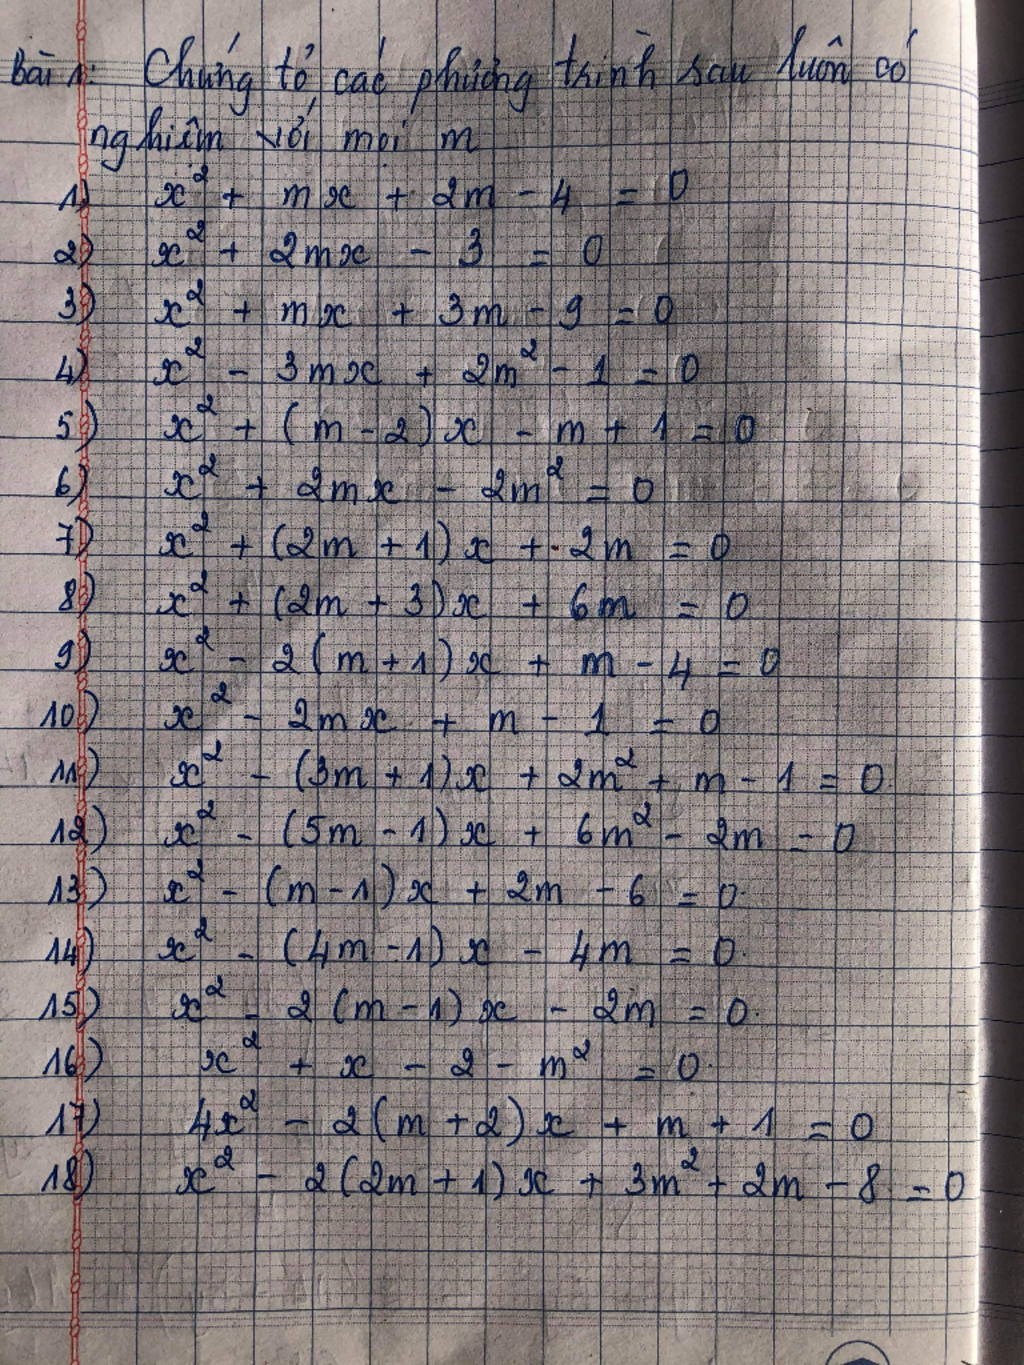 Bài 1: Chứng tỏ các phương trình sau luôn có
nghiệm với mọi m
1) x² + mx + 2m - 4 = 0
2) x² + 2mx - 3 = 0
3) x² + mx + 3m - 9 = 0
4) x² - 3mx + 2m² - 1 = 0
5) x² + (m - 2)x - m + 1 = 0
6) x² + 2mx - 2m² = 0
7) x² + (2m + 1)x + 2m = 0
8) x² + (2m + 3)x + 6m = 0
9) x² - 2(m + 1)x + m - 4 = 0
10) x² - 2mx + m - 1 = 0
11) x² - (3m + 1)x + 2m² + m - 1 = 0
12) x² - (5m - 1)x + 6m² - 2m = 0
13) x² - (m - 1)x + 2m - 6 = 0
14) x² - (4m - 1)x - 4m = 0
15) x² - 2(m - 1)x - 2m = 0
16) x² + x - 2 - m² = 0
17) 4x² - 2(m + 2)x + m + 1 = 0
18) x² - 2(2m + 1)x + 3m² + 2m - 8 = 0